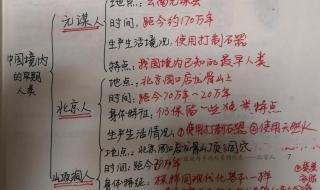 地点：云南元谋县
元谋人
时间：距今约170万年
生产生活情况：使用打制石器
特点：我国境内已知的最早人类
中国境内
的早期
人类
地点：北京周口店龙骨山
北京人
时间：距今70万年～20万年
身体特征：仍保留一些猿类特点
生产生活情况：①使用打制石器②使用天然火
山顶洞人
地点：北京周口店龙骨山顶部洞穴
时间：距今3万年
身体特征：模样同现代人基本一样